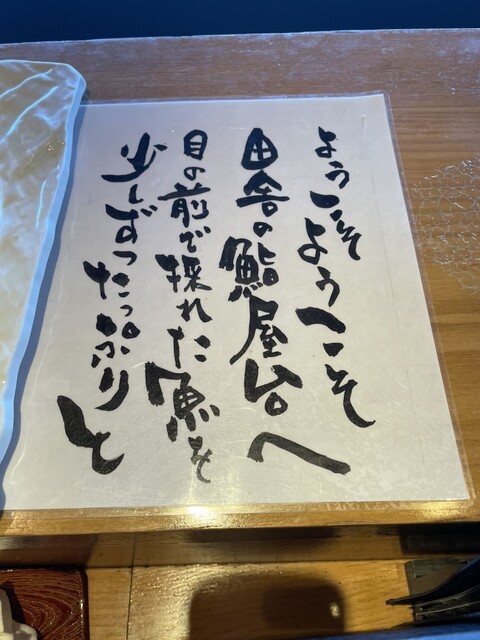 ようこそようこそ
田舎の鮨屋台へ
目の前で採れた魚を
少しずつたっぷりと